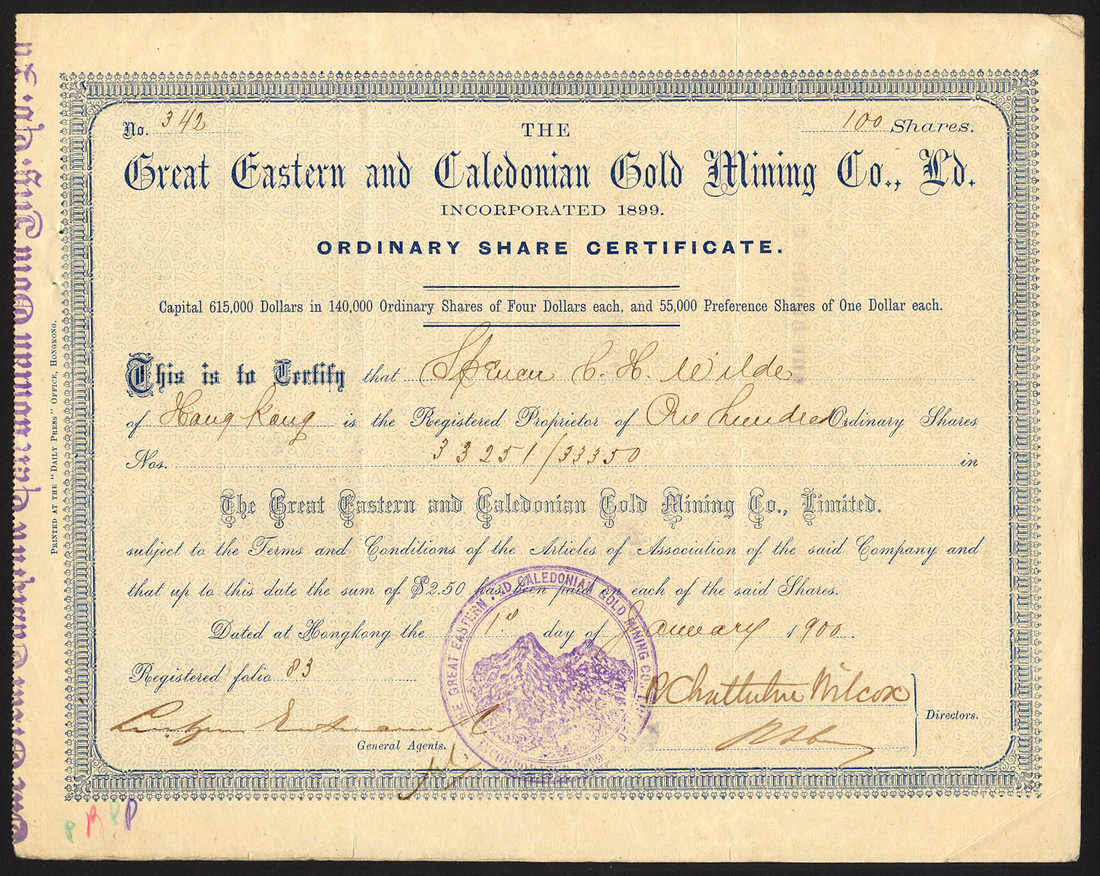 No. 342
100 Shares.
THE
Great Eastern and Caledonian Gold Mining Co., Ld.
INCORPORATED 1899.
ORDINARY SHARE CERTIFICATE.
Capital 615,000 Dollars in 140,000 Ordinary Shares of Four Dollars each, and 55,000 Preference Shares of One Dollar each.
This is to Certify that C. H. Wilde
of Hong Kong is the Registered Proprietor of One hundred Ordinary Shares
Nos. 33251/33350 in
The Great Eastern and Caledonian Gold Mining Co., Limited.
subject to the Terms and Conditions of the Articles of Association of the said Company and
that up to this date the sum of $2.50 has been paid on each of the said Shares.
Dated at Hongkong the 1st day of January 1900.
Registered folio 83
Wilcox
Directors.
General Agents.
THE GREAT EASTERN AND CALEDONIAN GOLD MINING CO
PRINTED AT THE "DAILY PRESS" OFFICE, HONGKONG.